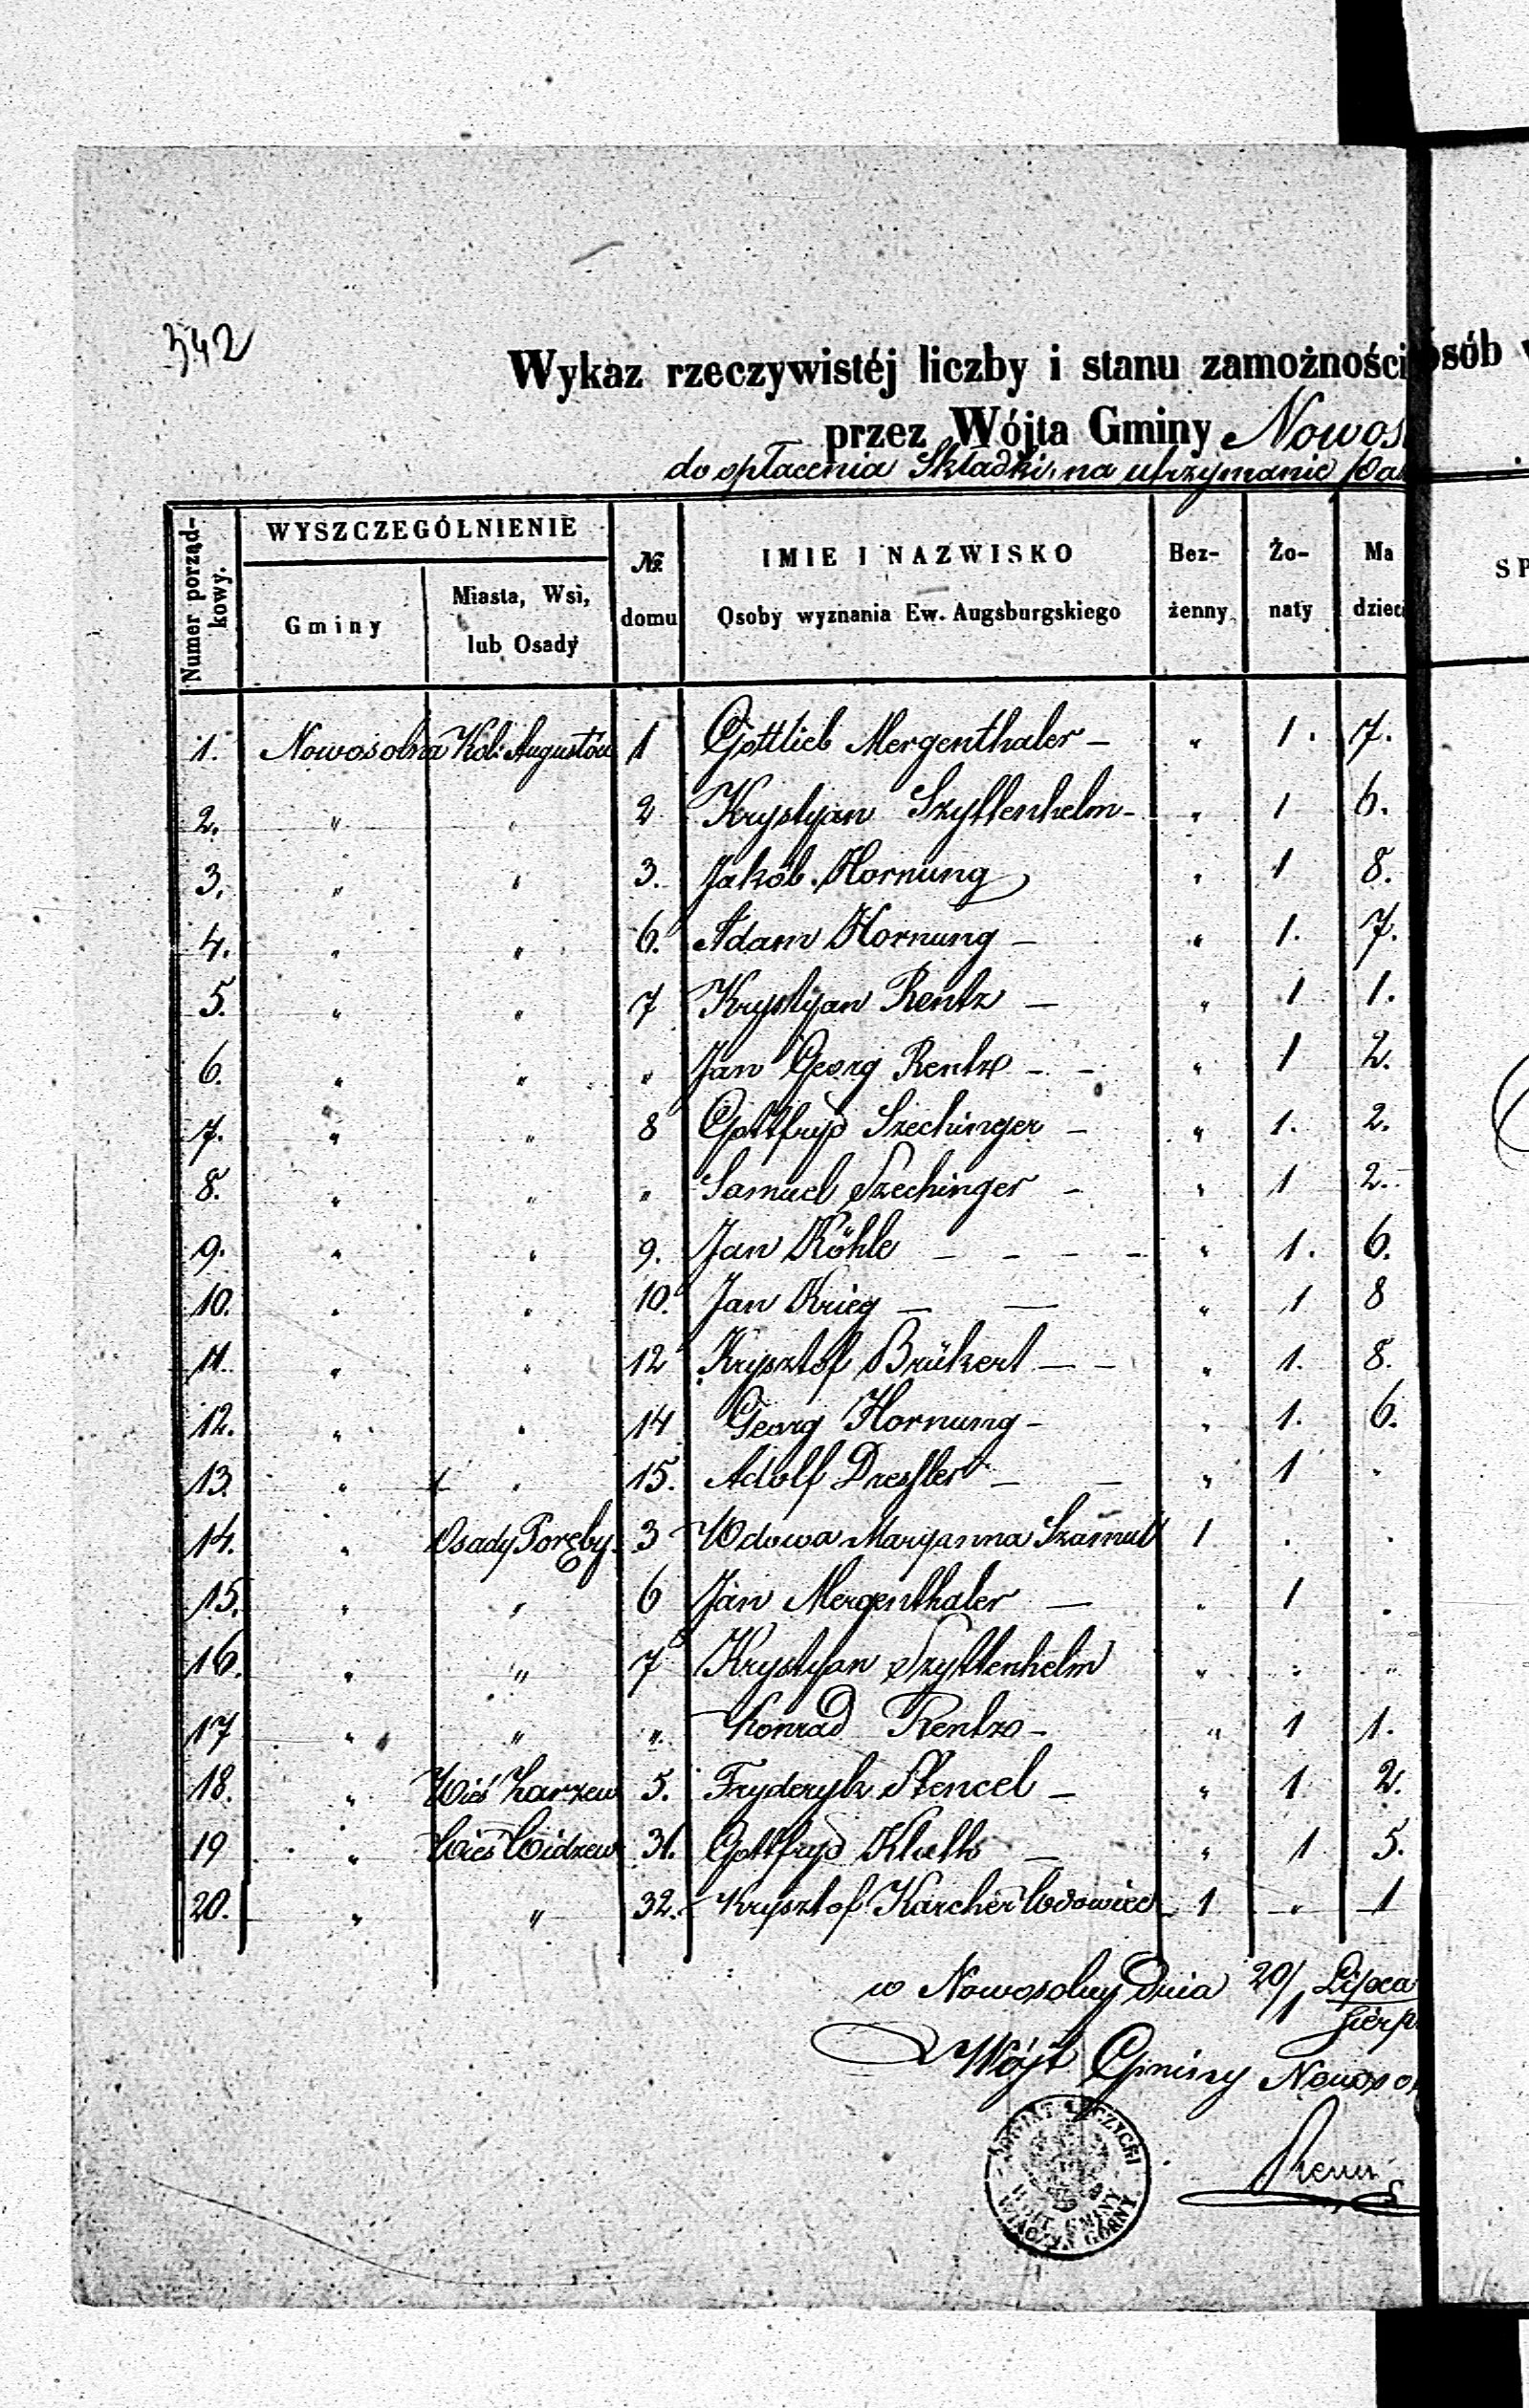 342
Wykaz rzeczywistéj liczby i stanu zamożności osób
przez Wójta Gminy Nowos
do opłacenia Składki na utrzymanie
Numer porządkowy. WYSZCZEGÓLNIENIE № domu IMIE I NAZWISKO Bezżenny Żonaty Ma dzieci SP
Gminy Miasta, Wsi, lub Osady Osoby wyznania Ew. Augsburgskiego
1. Nowosolna Kol: Augustów 1 Gottlieb Mergenthaler — " 1. 7.
2. " " 2 Krystyan Szyttenhelm - " 1 6.
3. " " 3. Jakób Hornung " 1 8.
4. " " 6. Adam Hornung — " 1. 7.
5. " " 7 Krystyan Rentz — " 1 1.
6. " " " Jan Georg Rentz - - " 1 2.
7. " " 8 Gottfryd Szechinger - " 1. 2.
8. " " " Samuel Szechinger - " 1 2.
9. " " 9. Jan Köhle - - - - " 1. 6.
10. " " 10. Jan Krieg — — " 1 8
11. " " 12 Krysztof Brükert — - " 1. 8.
12. " " 14 Georg Hornung - " 1. 6.
13. " " 15. Adolf Dressler — — " 1 "
14. " Osady Poręby 3 Wdowa Maryanna 1 . .
15. " " 6 Jan Mergenthaler — " 1 .
16. " " 7 Krystyan Szyttenhelm " " "
17 " " " Konrad Rentz - " 1 1.
18. " Wieś Zarzew 5. Fryderyk Stencel — " 1 2.
19 " Wieś Widzew 31. Gottfryd — " 1 5.
20. " " 32. Krysztof Karcher Wdowiec - 1 " 1
w Nowosolny Dnia 20/1 Lipca
Sierp
Wójt Gminy Nowoso
POWIAT ŁĘCZYCKI
WÓJT GMINY
WIĄCZYŃ GÓRNY